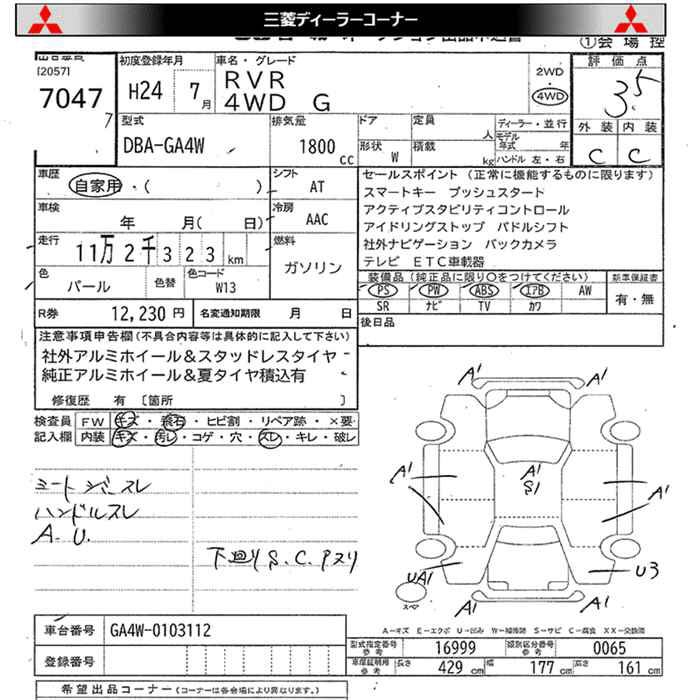 三菱ディーラーコーナー
①会場控
[2057]
7047
初度登録年月
H24 7月
車名・グレード
RVR
4WD G
2WD
4WD
評価点
3.5
外装 内装
C C
型式
DBA-GA4W
排気量
1800 cc
ドア
形状 W
定員 人
積載 kg
ディーラー・並行
モデル年式 年
ハンドル 左・右
車歴
自家用・( )
シフト
AT
車検
年 月( 日)
冷房
AAC
走行
11万2千323km
燃料
ガソリン
色
パール
色替
色コード
W13
R券 12,230円
名変通知期限 月 日
セールスポイント (正常に機能するものに限ります)
スマートキー プッシュスタート
アクティブスタビリティコントロール
アイドリングストップ パドルシフト
社外ナビゲーション バックカメラ
テレビ ETC車載器
装備品 (純正品に限り○をつけてください)
新車保証書
PS PW ABS エアB AW
SR ナビ TV カワ
有・無
後日品
注意事項申告欄 (不具合内容等は具体的に記入して下さい)
社外アルミホイール&スタッドレスタイヤ
純正アルミホイール&夏タイヤ積込有
修復歴 有 〔箇所 〕
検査員記入欄
FW キズ・飛石・ヒビ割・リペア跡・×要
内装 キズ・汚レ・コゲ・穴・スレ・キレ・破レ
シートシミスレ
ハンドルスレ
A.U.
下廻りS.C.Pヌリ
A1 A1
A1 A1 S1 A1
UA1 U3
スペア
A1 A1
A-キズ E-エクボ U-凹み W-補修跡 S-サビ C-腐食 XX-交換済
車台番号 GA4W-0103112
登録番号
型式指定番号参考 16999 類別区分番号参考 0065
車庫証明用参考 長さ 429cm 幅 177cm 高さ 161cm
希望出品コーナー (コーナーは各会場により異なります。)